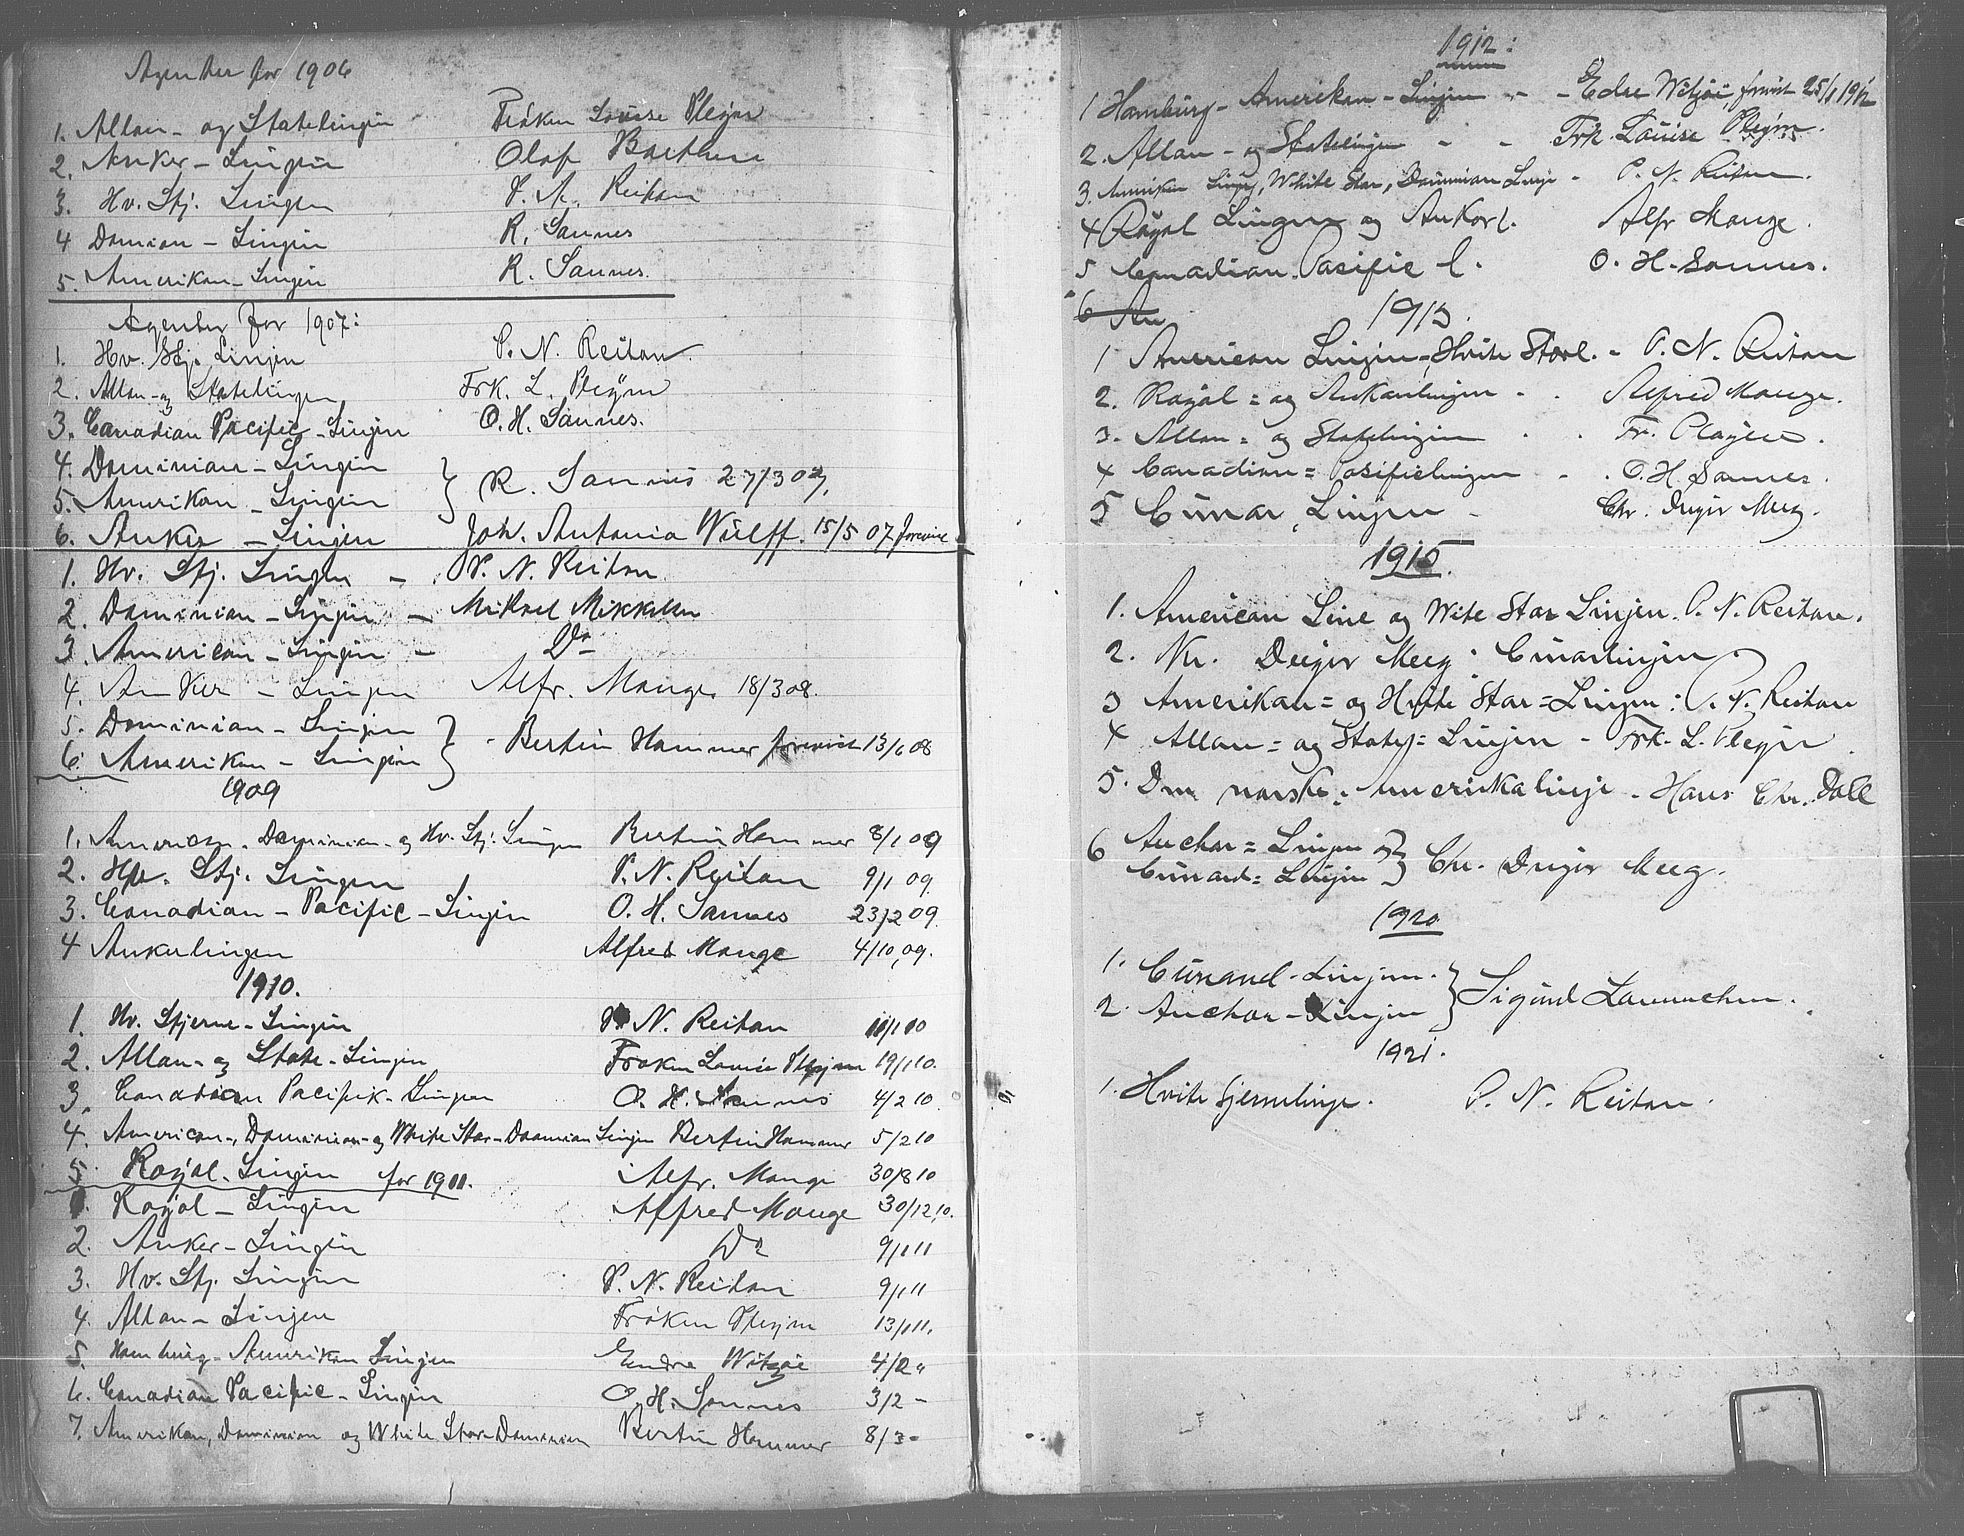 Agenter for 1906
1. Allan- og Statelinjen Frøken Louise Pleÿm
2. Anker-Linjen Olaf
3. Hv. Stj. Linjen P. N. Reitan
4 Domian-Linjen R. Sannes
5. Amerikan-Linjen R. Sannes.
Agenter for 1907:
1. Hv. Stj. Linjen P. N. Reitan.
2. Allan- og Statelinjen Frk. L. Pleÿm
3. Canadian Pacific-Linjen O. H. Sannes.
4. Dominian-Linjen
5. Amerikan-Linjen } R. Sannes 27/3 07,
6. Anker-Linjen Joh. Antonio Wulff. 15/5 07 forevist
1. Hv. Stj. Linjen - P. N. Reitan
2. Dominian-Linjen - Mikael Mikkelsen
3. American-Linjen - Do
4. Anker-Linjen Alfr. Mange 18/3 08.
5. Dominian-Linjen
6. Amerikan-Linjen } - Bertin Hammer forevist 13/6 08
1909
1. American. Dominian- og Hv. Stj. Linjen Bertin Hammer 8/1 09
2. Hv. Stj. Linjen P. N. Reitan 9/1 09.
3. Canadian-Pacific-Linjen O. H. Sannes 23/2 09
4 Ankerlinjen Alfred Mange 4/10, 09.
1910.
1. Hv. Stjerne-Linjen P. N. Reitan 11/1 10
2. Allan- og State-Linjen Frøken Louise Pleijm 19/1 10.
3. Canadian Pacifik-Linjen O. H. Sannes 4/2 10.
4. American-, Dominian- og White Star-Daaminian Linjen Bertin Hammer 5/2 10
5 Royal-Linjen Alfr. Mange 30/8 10
for 1911.
1. Royal-Linjen Alfred Mange 30/12, 10.
2. Anker-Linjen Do 9/1 11
3. Hv. Stj. Linjen P. N. Reitan 9/1 11
4. Allan-Linjen Frøken Pleijm 13/1 11.
5. Hamburg-Amerikan Linjen Endre Witzøe 4/2 "
6. Canadian Pacific-Linjen O. H. Sannes 3/2 -
7. Amerikan, Dominian og White Star-Dominian Bertin Hammer 8/3 -
1912:
1 Hamburg-Amerikan-Linjen - - Edre Witzøe, forevist 25/1 1912
2. Allan- og Statelinjen - - Frk. Louise Pleijm.
3. Amerikan Linjen, White Star, Dauminian Linje - P. N. Reitan.
4 Royal Linjen og Ankorl. Alfr Mange.
5 Canadian Pasific l. O. H. Sannes.
6 An
1913.
1 American Linjen, Hvite Starl. - P. N. Reitan
2. Royal= og Ankerlinjen - . Alfred Mange.
3. Allan= og Statelinjen . . Fr. Playen.
4 Canadian= Pasificlinjen - . O. H. Sannes.
5 Cunar, Linjen - Chr. Døger Meeg.
1915.
1. American Line og Wite Star Linjen. P. N. Reitan.
2. Kr. Døger Meeg: Cunarlinjen
3 Amerikan= og Hvite Star=Linjen: P. N. Reitan
4 Allan= og State=Linjen - Frk. L. Pleijn
5. Den norske Amerikalinje - Hans Chr. Dall
6 Anchor=Linjen og
Cunard=Linjen } Chr. Døger Meeg.
1920
1. Cunard-Linjen.
2. Anchor-Linjen } Sigurd
1921.
1. Hvite Stjernelinje. P. N. Reitan.